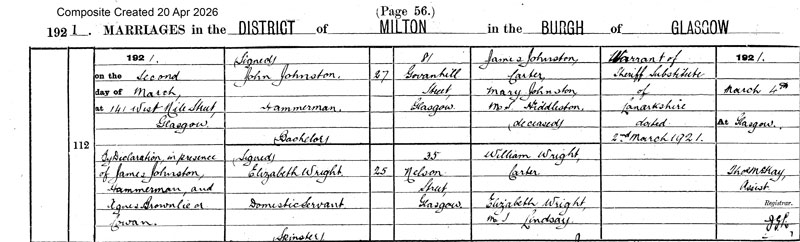 Composite Created 20 Apr 2026
(Page 56.)
1921. MARRIAGES in the DISTRICT of MILTON in the BURGH of GLASGOW
1921.
on the Second
day of March,
at 141 West Nile Street,
Glasgow
112
By Declaration, in presence
of James Johnston,
Hammerman, and
Agnes Brownlie or
Cowan.
(Signed)
John Johnston.
Hammerman.
(Bachelor)
(Signed)
Elizabeth Wright,
Domestic Servant
(Spinster)
27
25
81
Govanhill
Street
Glasgow.
35
Nelson
Street,
Glasgow
James Johnston,
Carter,
Mary Johnston
M.S. Hiddleston
(deceased)
William Wright,
Carter.
Elizabeth Wright,
M.S. Lindsay.
Warrant of
Sheriff Substitute
of
Lanarkshire
dated
2nd March 1921.
1921.
March 4th
At Glasgow.
Assist.
Registrar.